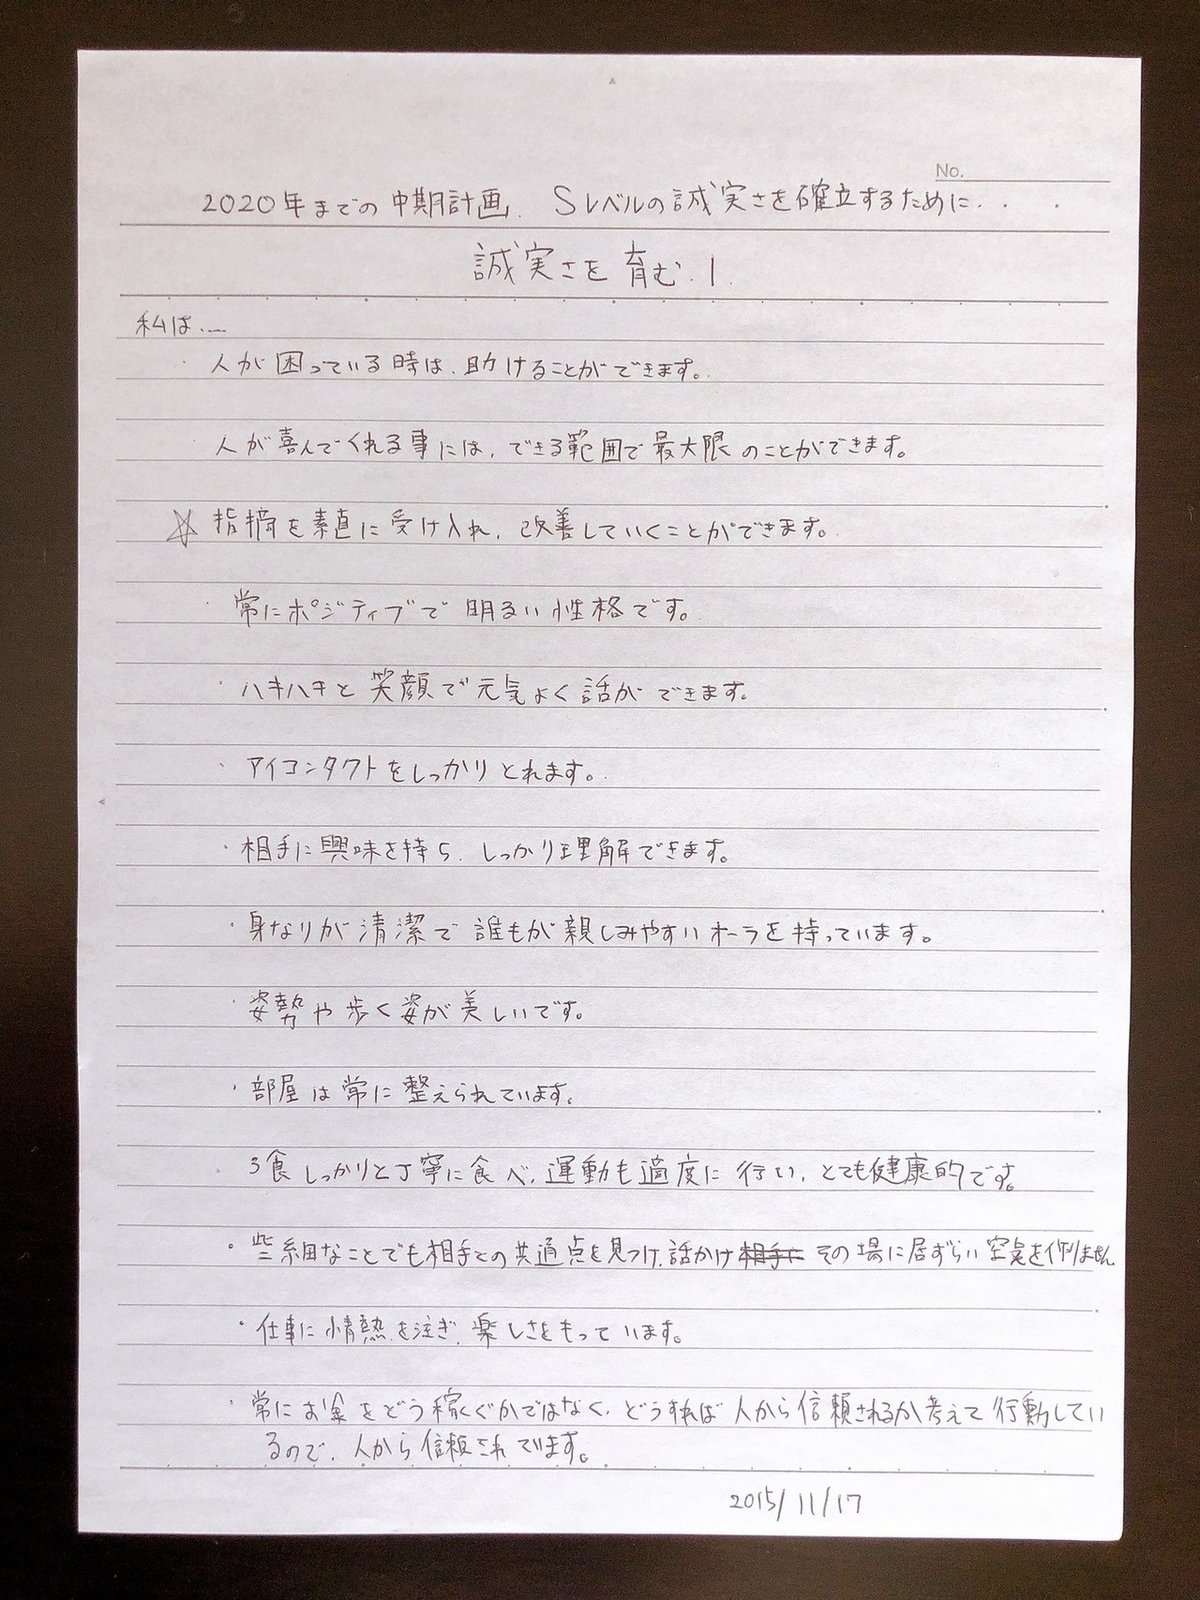 No.
2020年までの中期計画. Sレベルの誠実さを確立するために...
誠実さを育む.1.
私は...
・人が困っている時は、助けることができます。
人が喜んでくれる事には、できる範囲で最大限のことができます。
☆指摘を素直に受け入れ、改善していくことができます。
・常にポジティブで明るい性格です。
・ハキハキと笑顔で元気よく話ができます。
・アイコンタクトをしっかりとれます。
・相手に興味を持ち、しっかり理解できます。
・身なりが清潔で誰もが親しみやすいオーラを持っています。
・姿勢や歩く姿が美しいです。
・部屋は常に整えられています。
・3食しっかりと丁寧に食べ、運動も適度に行い、とても健康的です。
・些細なことでも相手との共通点を見つけ、話かけ相手にその場に居ずらい空気を作りません
・仕事に情熱を注ぎ、楽しさをもっています。
・常にお金をどう稼ぐかではなく、どうすれば人から信頼されるか考えて行動してい
るので、人から信頼されています。
2015/11/17